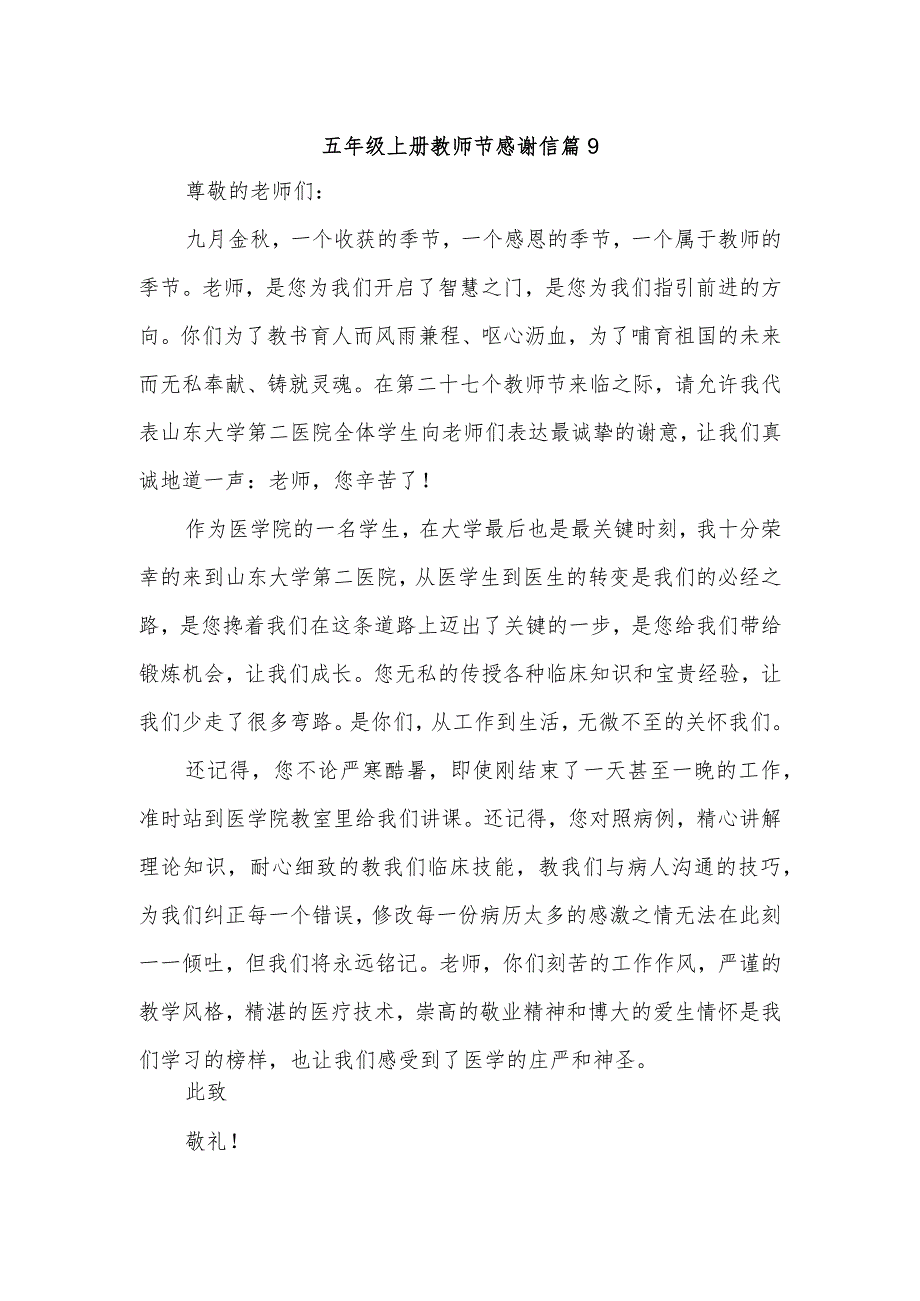 五年级上册教师节感谢信篇9
尊敬的老师们：
九月金秋，一个收获的季节，一个感恩的季节，一个属于教师的
季节。老师，是您为我们开启了智慧之门，是您为我们指引前进的方
向。你们为了教书育人而风雨兼程、呕心沥血，为了哺育祖国的未来
而无私奉献、铸就灵魂。在第二十七个教师节来临之际，请允许我代
表山东大学第二医院全体学生向老师们表达最诚挚的谢意，让我们真
诚地道一声：老师，您辛苦了！
作为医学院的一名学生，在大学最后也是最关键时刻，我十分荣
幸的来到山东大学第二医院，从医学生到医生的转变是我们的必经之
路，是您搀着我们在这条道路上迈出了关键的一步，是您给我们带给
锻炼机会，让我们成长。您无私的传授各种临床知识和宝贵经验，让
我们少走了很多弯路。是你们，从工作到生活，无微不至的关怀我们。
还记得，您不论严寒酷暑，即使刚结束了一天甚至一晚的工作，
准时站到医学院教室里给我们讲课。还记得，您对照病例，精心讲解
理论知识，耐心细致的教我们临床技能，教我们与病人沟通的技巧，
为我们纠正每一个错误，修改每一份病历太多的感激之情无法在此刻
一一倾吐，但我们将永远铭记。老师，你们刻苦的工作作风，严谨的
教学风格，精湛的医疗技术，崇高的敬业精神和博大的爱生情怀是我
们学习的榜样，也让我们感受到了医学的庄严和神圣。
此致
敬礼！